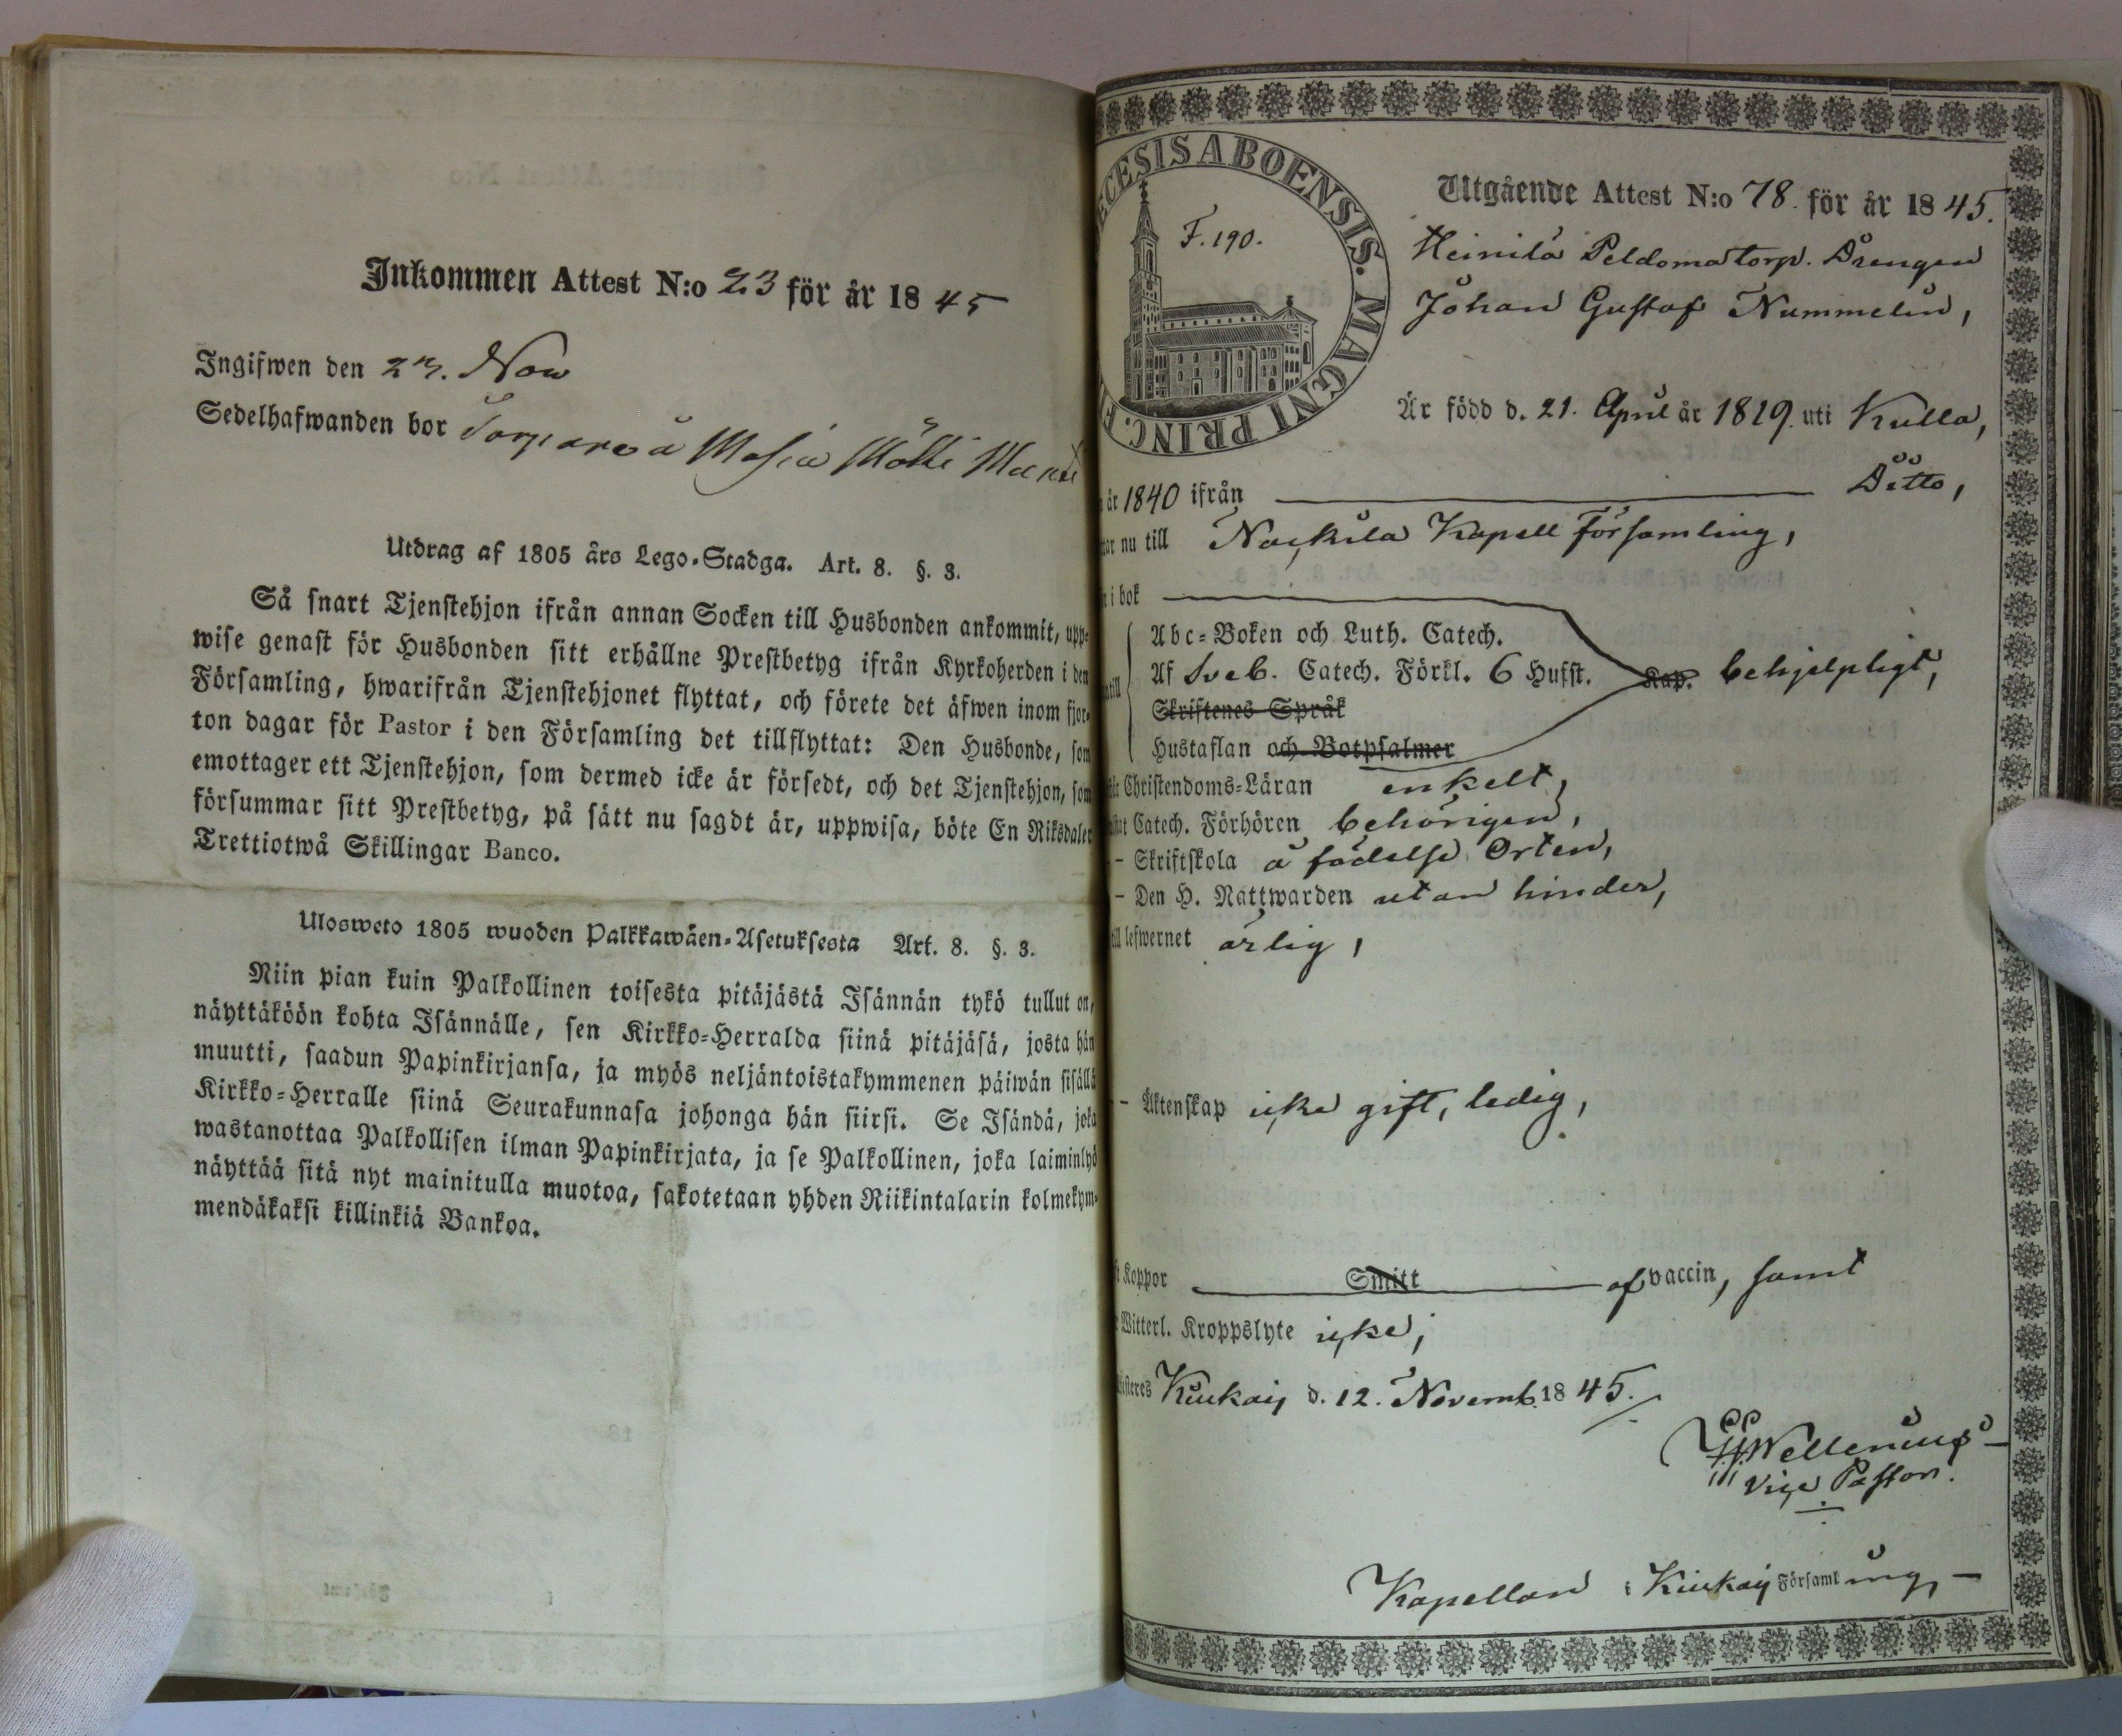 Inkommen Attest N:o 23 för år 1845
Ingifwen den 23. Nov
Sedelhafwanden bor
Utdrag af 1805 års Lego-Stadga. Art. 8. §. 3.
Så snart Tjenstehjon ifrån annan Socken till Husbonden ankommit, upp-
wise genast för Husbonden sitt erhållne Prestbetyg ifrån Kyrkoherden i den
Församling, hwarifrån Tjenstehjonet flyttat, och förete det äfwen inom fjor-
ton dagar för Pastor i den Församling det tillflyttat: Den Husbonde, som
emottager ett Tjenstehjon, som dermed icke är försedt, och det Tjenstehjon, som
försummar sitt Prestbetyg, på sätt nu sagdt är, uppwisa, böte En Riksdaler
Trettiotwå Skillingar Banco.
Ulosweto 1805 wuoden Palkkawäen-Asetuksesta Art. 8. §. 3.
Niin pian kuin Palkollinen toisesta pitäjästä Isännän tykö tullut on,
näyttäköön kohta Isännälle, sen Kirkko-Herralda siinä pitäjäsä, josta hän
muutti, saadun Papinkirjansa, ja myös neljäntoistakymmenen päiwän sisällä
Kirkko-Herralle siinä Seurakunnasa johonga hän siirsi. Se Isändä, joka
wastanottaa Palkollisen ilman Papinkirjata, ja se Palkollinen, joka laiminlyö
näyttää sitä nyt mainitulla muotoa, sakotetaan yhden Riikintalarin kolmekym-
mendäkaksi killinkiä Bankoa.
ECESIS ABOENSIS. MAGNI PRINC. F
F. 190.
Utgående Attest N:o 78. för år 1845.
Heinilä Peldoma torp. Drengen
Johan Gustaf Nummelin,
Är född d. 21. April år 1819. uti Kulla,
år 1840 ifrån Ditto,
nu till Nackila Kapell församling,
i bok
Abc-Boken och Luth. Catech.
Af Sveb. Catech. Förkl. 6 Hufst. Kap. behjelpligt,
Skriftenes Språk
Hustaflan och Botpsalmer
Christendoms-Läran enkelt,
Catech. Förhören behörigen,
- Skriftskola å födelse Orten,
- Den H. Nattwarden utan hinder,
lefwernet ärlig,
- Äktenskap icke gift, ledig,
Koppor Smitt af vaccin, samt
Witterl. Kroppslyte icke;
Kiukais d. 12. Novemb. 1845.
Wellenius
Vice Pastor.
Kapellan i Kiukais Församling,